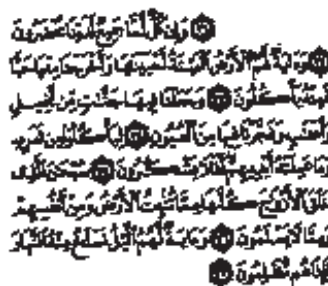 وَإِن كُلٌّ لَّمَّا جَمِيعٌ لَّدَيْنَا مُحْضَرُونَ
وَءَايَةٌ لَّهُمُ ٱلْأَرْضُ ٱلْمَيْتَةُ أَحْيَيْنَٰهَا وَأَخْرَجْنَا مِنْهَا حَبًّا
فَمِنْهُ يَأْكُلُونَ وَجَعَلْنَا فِيهَا جَنَّٰتٍ مِّن نَّخِيلٍ
وَأَعْنَٰبٍ وَفَجَّرْنَا فِيهَا مِنَ ٱلْعُيُونِ لِيَأْكُلُوا۟ مِن ثَمَرِهِۦ
وَمَا عَمِلَتْهُ أَيْدِيهِمْ أَفَلَا يَشْكُرُونَ سُبْحَٰنَ ٱلَّذِى
خَلَقَ ٱلْأَزْوَٰجَ كُلَّهَا مِمَّا تُنۢبِتُ ٱلْأَرْضُ وَمِنْ أَنفُسِهِمْ
وَمِمَّا لَا يَعْلَمُونَ وَءَايَةٌ لَّهُمُ ٱلَّيْلُ نَسْلَخُ مِنْهُ ٱلنَّهَارَ
فَإِذَا هُم مُّظْلِمُونَ